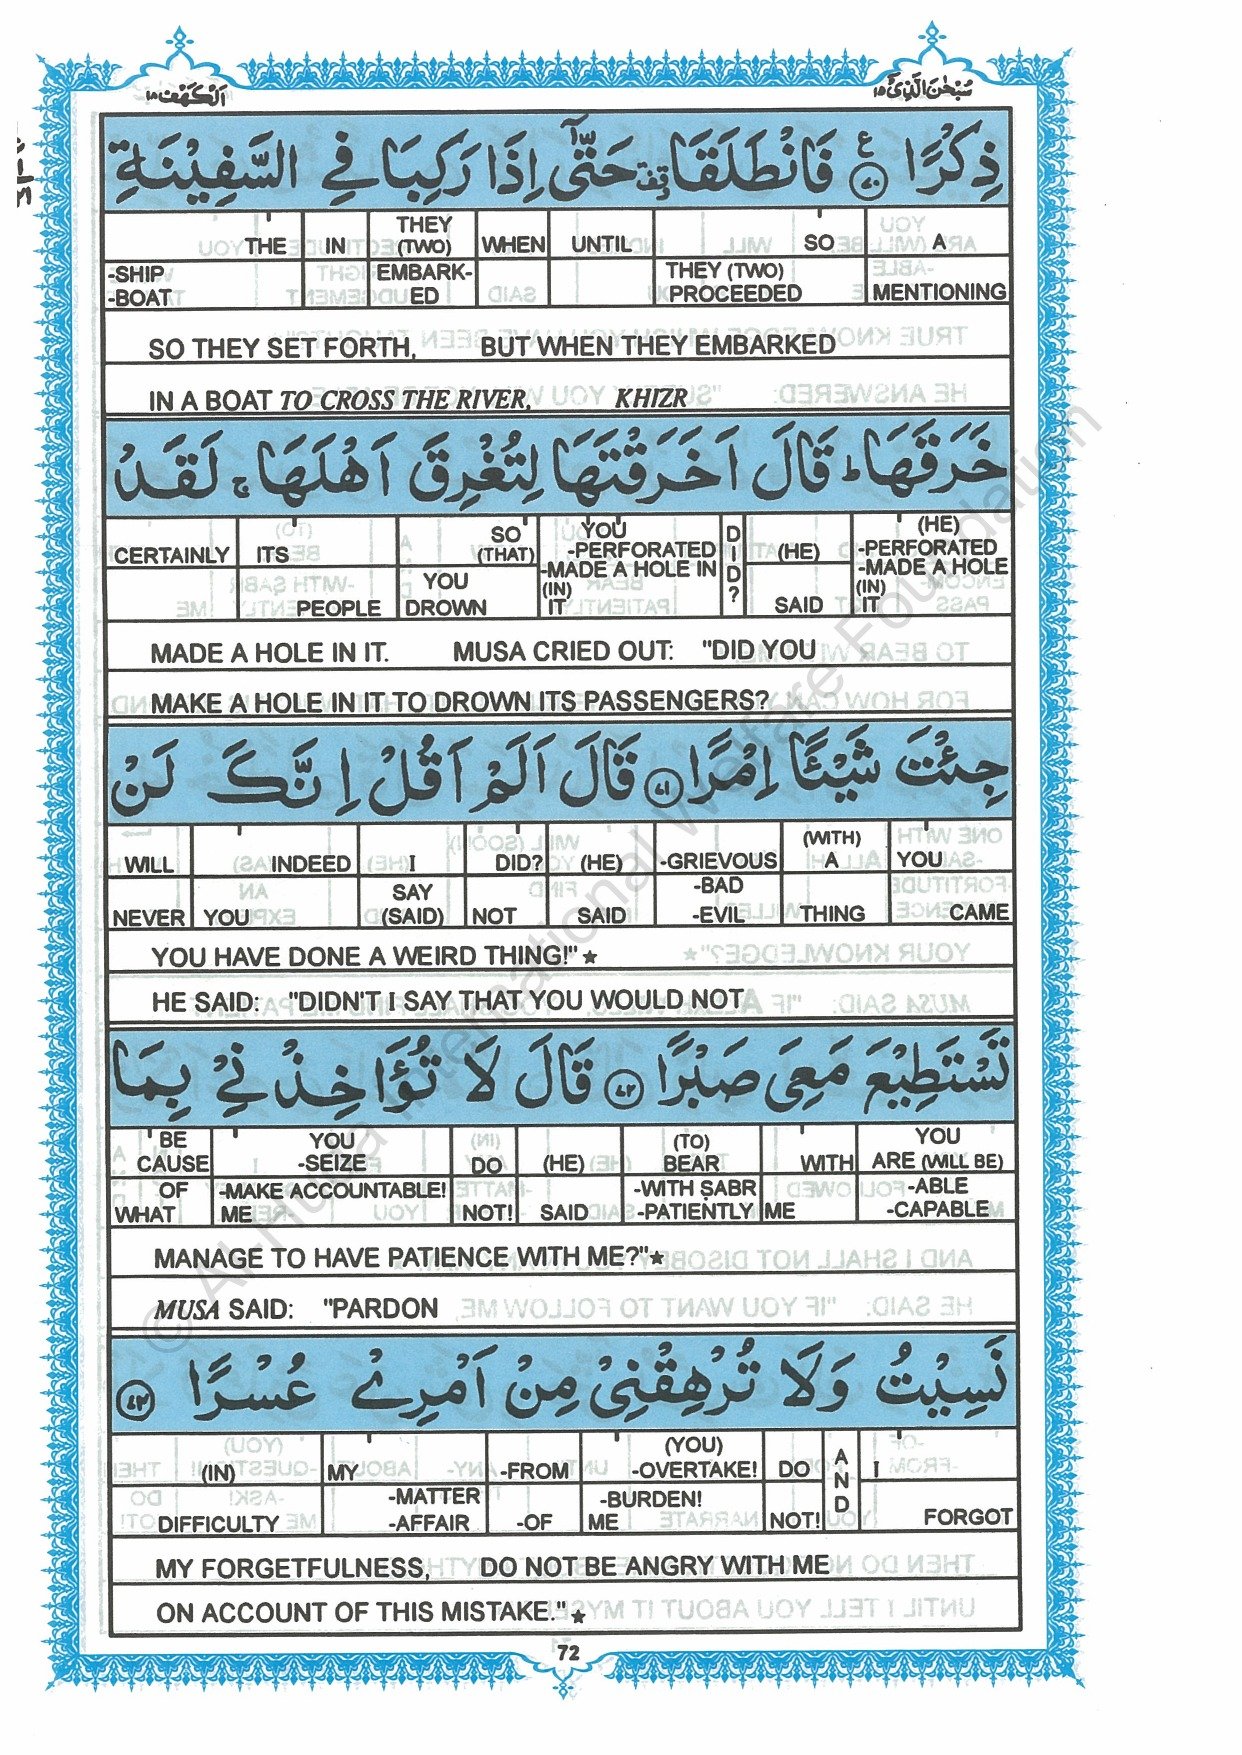 اَلْكَهْف ١٨
سُبْحٰنَ الَّذِیْۤ ١٥
ذِكْرًا ﴿٧٠﴾ ع فَانْطَلَقَا وقفة حَتّٰۤى اِذَا رَكِبَا فِي السَّفِيْنَةِ
THE IN THEY (TWO) WHEN UNTIL SO A
-SHIP -BOAT EMBARK-ED THEY (TWO) PROCEEDED MENTIONING
SO THEY SET FORTH, BUT WHEN THEY EMBARKED
IN A BOAT TO CROSS THE RIVER, KHIZR
خَرَقَهَا ؕ قَالَ اَخَرَقْتَهَا لِتُغْرِقَ اَهْلَهَا ۚ لَقَدْ
CERTAINLY ITS SO (THAT) YOU -PERFORATED -MADE A HOLE IN (IN) IT DID? (HE) (HE) -PERFORATED -MADE A HOLE (IN) IT
PEOPLE YOU DROWN SAID
MADE A HOLE IN IT. MUSA CRIED OUT: "DID YOU
MAKE A HOLE IN IT TO DROWN ITS PASSENGERS?
جِئْتَ شَيْـًٔا اِمْرًا ﴿٧١﴾ قَالَ اَلَمْ اَقُلْ اِنَّكَ لَنْ
WILL INDEED I DID? (HE) -GRIEVOUS (WITH) A YOU
NEVER YOU SAY (SAID) NOT SAID -BAD -EVIL THING CAME
YOU HAVE DONE A WEIRD THING!" ★
HE SAID: "DIDN'T I SAY THAT YOU WOULD NOT
تَسْتَطِيْعَ مَعِيَ صَبْرًا ﴿٧٢﴾ قَالَ لَا تُؤَاخِذْنِيْ بِمَا
BE CAUSE YOU -SEIZE DO (HE) (TO) BEAR WITH YOU ARE (WILL BE)
OF WHAT -MAKE ACCOUNTABLE! ME NOT! SAID -WITH SABR -PATIENTLY ME -ABLE -CAPABLE
MANAGE TO HAVE PATIENCE WITH ME?" ★
MUSA SAID: "PARDON
نَسِيْتُ وَلَا تُرْهِقْنِيْ مِنْ اَمْرِيْ عُسْرًا ﴿٧٣﴾
(IN) MY -FROM (YOU) -OVERTAKE! DO AND I
DIFFICULTY -MATTER -AFFAIR -OF -BURDEN! ME NOT! FORGOT
MY FORGETFULNESS, DO NOT BE ANGRY WITH ME
ON ACCOUNT OF THIS MISTAKE." ★
72
© Al-Huda International Welfare Foundation